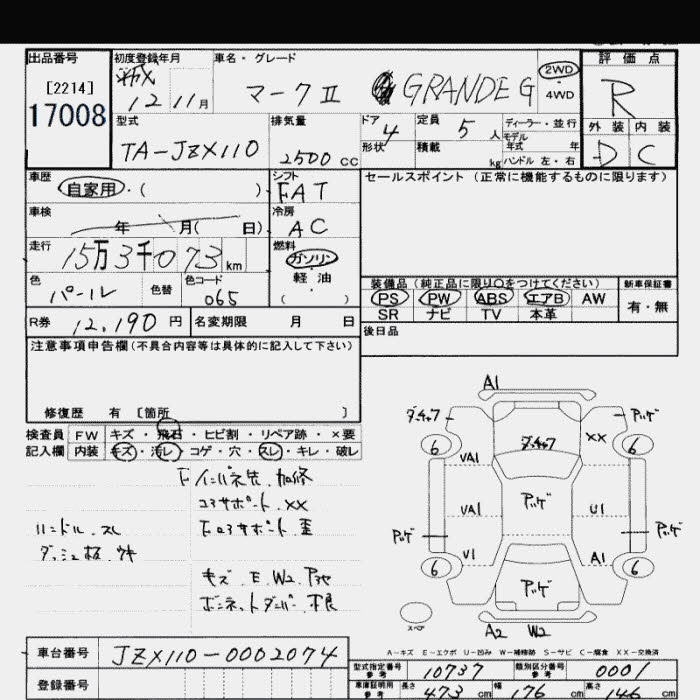 出品番号
[2214]
17008
初度登録年月
12 11月
車名・グレード
マークⅡ GRANDE G
2WD
4WD
評価点
R
外装 内装
D C
型式
TA-JZX110
排気量
2500 CC
ドア
4
形状
定員
5 人
積載
kg
ディーラー・並行
モデル
年式 年
ハンドル 左・右
車歴
自家用・( )
シフト
FAT
セールスポイント (正常に機能するものに限ります)
車検
年 月( 日)
冷房
AC
走行
15万3千073km
燃料
ガソリン
軽・油
( )
色
パール
色替
色コード
065
装備品 (純正品に限り〇をつけてください)
新車保証書
PS PW ABS エアB AW
有・無
SR ナビ TV 本革
R券 12,190 円
名変期限 月 日
後日品
注意事項申告欄(不具合内容等は具体的に記入して下さい)
修復歴 有 [箇所 ]
検査員
記入欄
FW キズ・飛石・ヒビ割・リペア跡・×要
内装 キズ・汚レ・コゲ・穴・スレ・キレ・破レ
F インパネ先.加修
コアサポート.XX
ハンドル.スレ
ダッシュ板.ウキ
キズ.E.W2.アセ
ボンネットダンパー.不良
A1
6
XX
6
VA1
VA1
U1
V1
A1
6
6
スペア
A2 W2
A-キズ E-エクボ U-凹み W-補修跡 S-サビ C-腐食 XX-交換済
車台番号
JZX110-0002074
登録番号
型式指定番号
参考
10737
類別区分番号
参考
0001
車庫証明用
参考
長さ
473 cm
幅
176 cm
高さ
146 cm